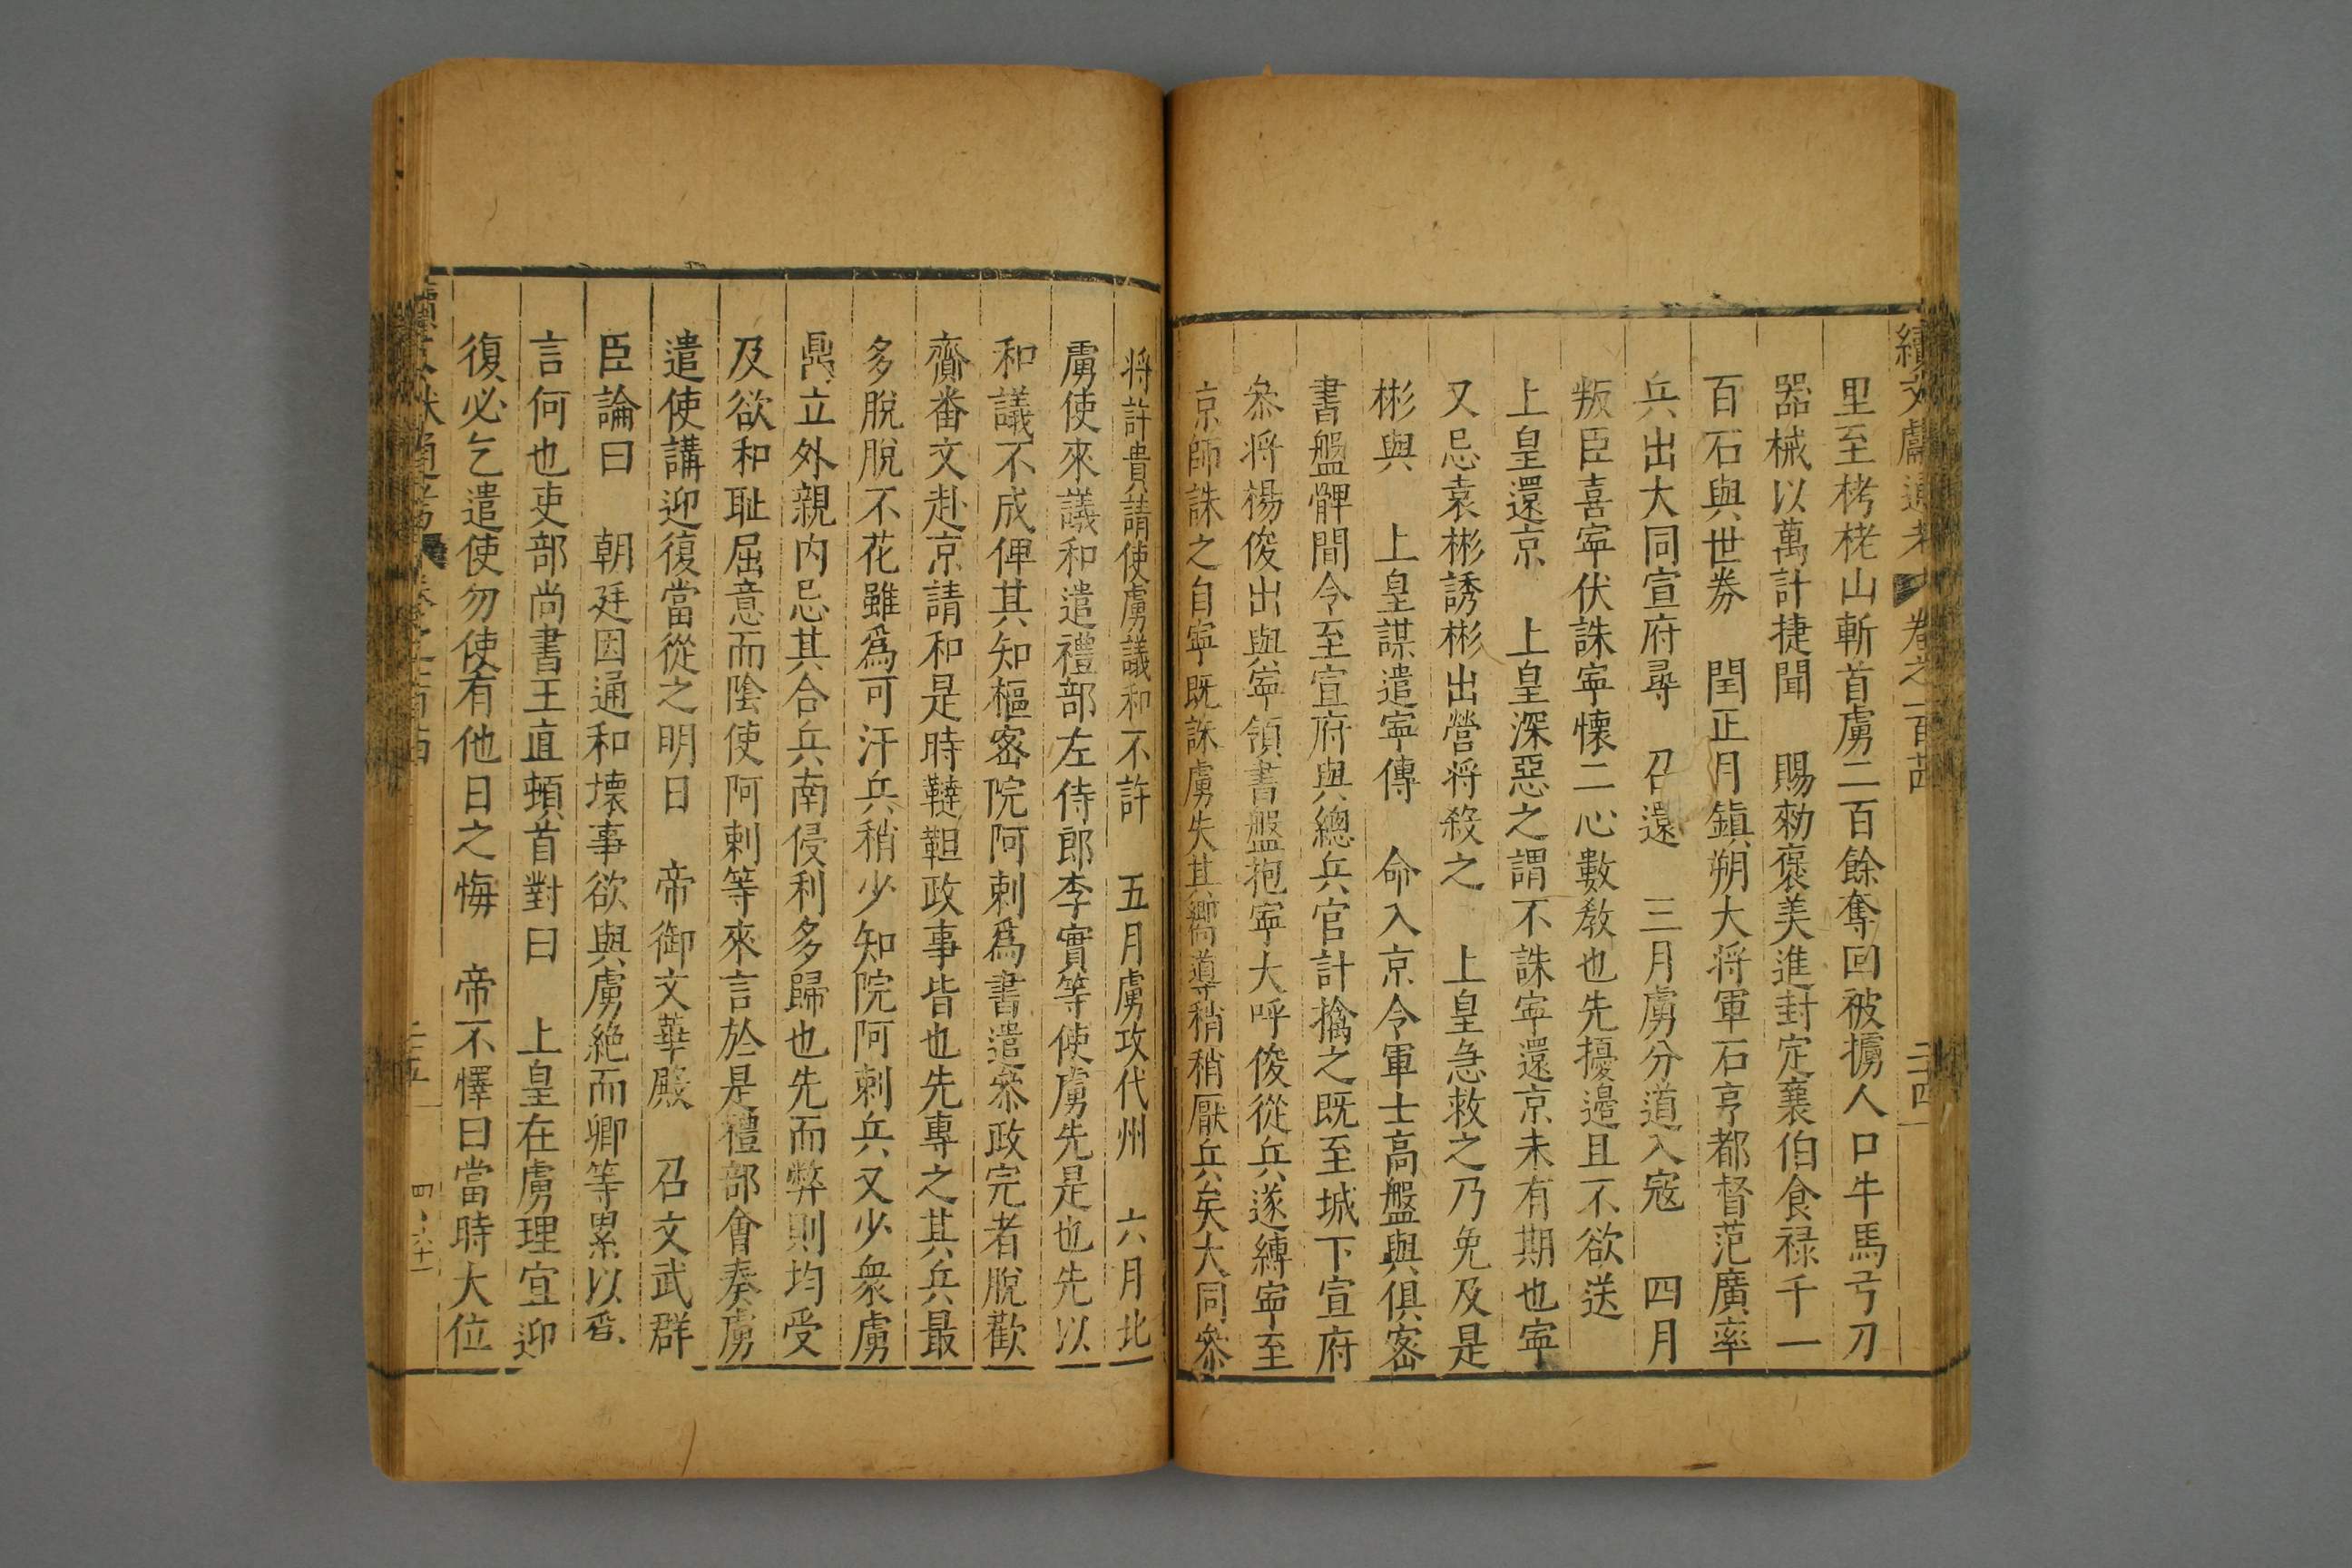 續文獻通考 卷之二百
里至栲栳山斬首虜二百餘奪回被擄人口牛馬弓刀
器械以萬計捷聞 賜勑褒美進封定襄伯食祿千一
百石與世券 閏正月鎮朔大將軍石亨都督范廣率
兵出大同宣府尋 召還 三月虜分道入寇 四月
叛臣喜寧伏誅寧懷二心數教也先擾邊且不欲送
上皇還京 上皇深惡之謂不誅寧還京未有期也寧
又忌袁彬誘彬出營將殺之 上皇急救之乃免及是
彬與 上皇謀遣寧傳 命入京令軍士高盤與俱密
書盤髀間令至宣府與總兵官計擒之既至城下宣府
叅將楊俊出與寧領書盤抱寧大呼俊從兵遂縛寧至
京師誅之自寧既誅虜失其鄉導稍稍厭兵矣大同叅
將許貴請使虜議和不許 五月虜攻代州 六月北
虜使來議和遣禮部左侍郎李實等使虜先是也先以
和議不成俾其知樞密院阿剌爲書遣叅政完者脫歡
齎番文赴京請和是時韃靼政事皆也先專之其兵最
多脫脫不花雖爲可汗兵稍少知院阿剌兵又少衆虜
鼎立外親內忌其合兵南侵利多歸也先而弊則均受
及欲和恥屈意而陰使阿剌等來言於是禮部會奏虜
遣使講迎復當從之明日 帝御文華殿 召文武群
臣論曰 朝廷因通和壞事欲與虜絶而卿等累以爲
言何也吏部尚書王直頓首對曰 上皇在虜理宜迎
復必乞遣使勿使有他日之悔 帝不懌曰當時大位